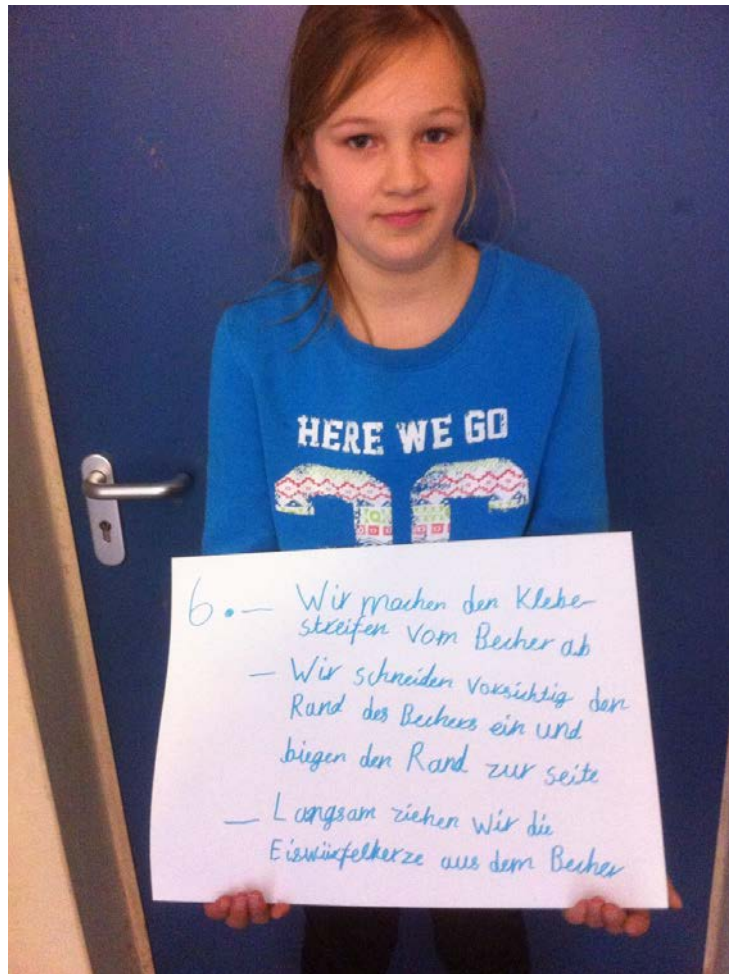 HERE WE GO
6. — Wir machen den Klebe-
streifen vom Becher ab
— Wir schneiden vorsichtig den
Rand des Bechers ein und
biegen den Rand zur seite
— Langsam ziehen wir die
Eiswürfelkerze aus dem Becher